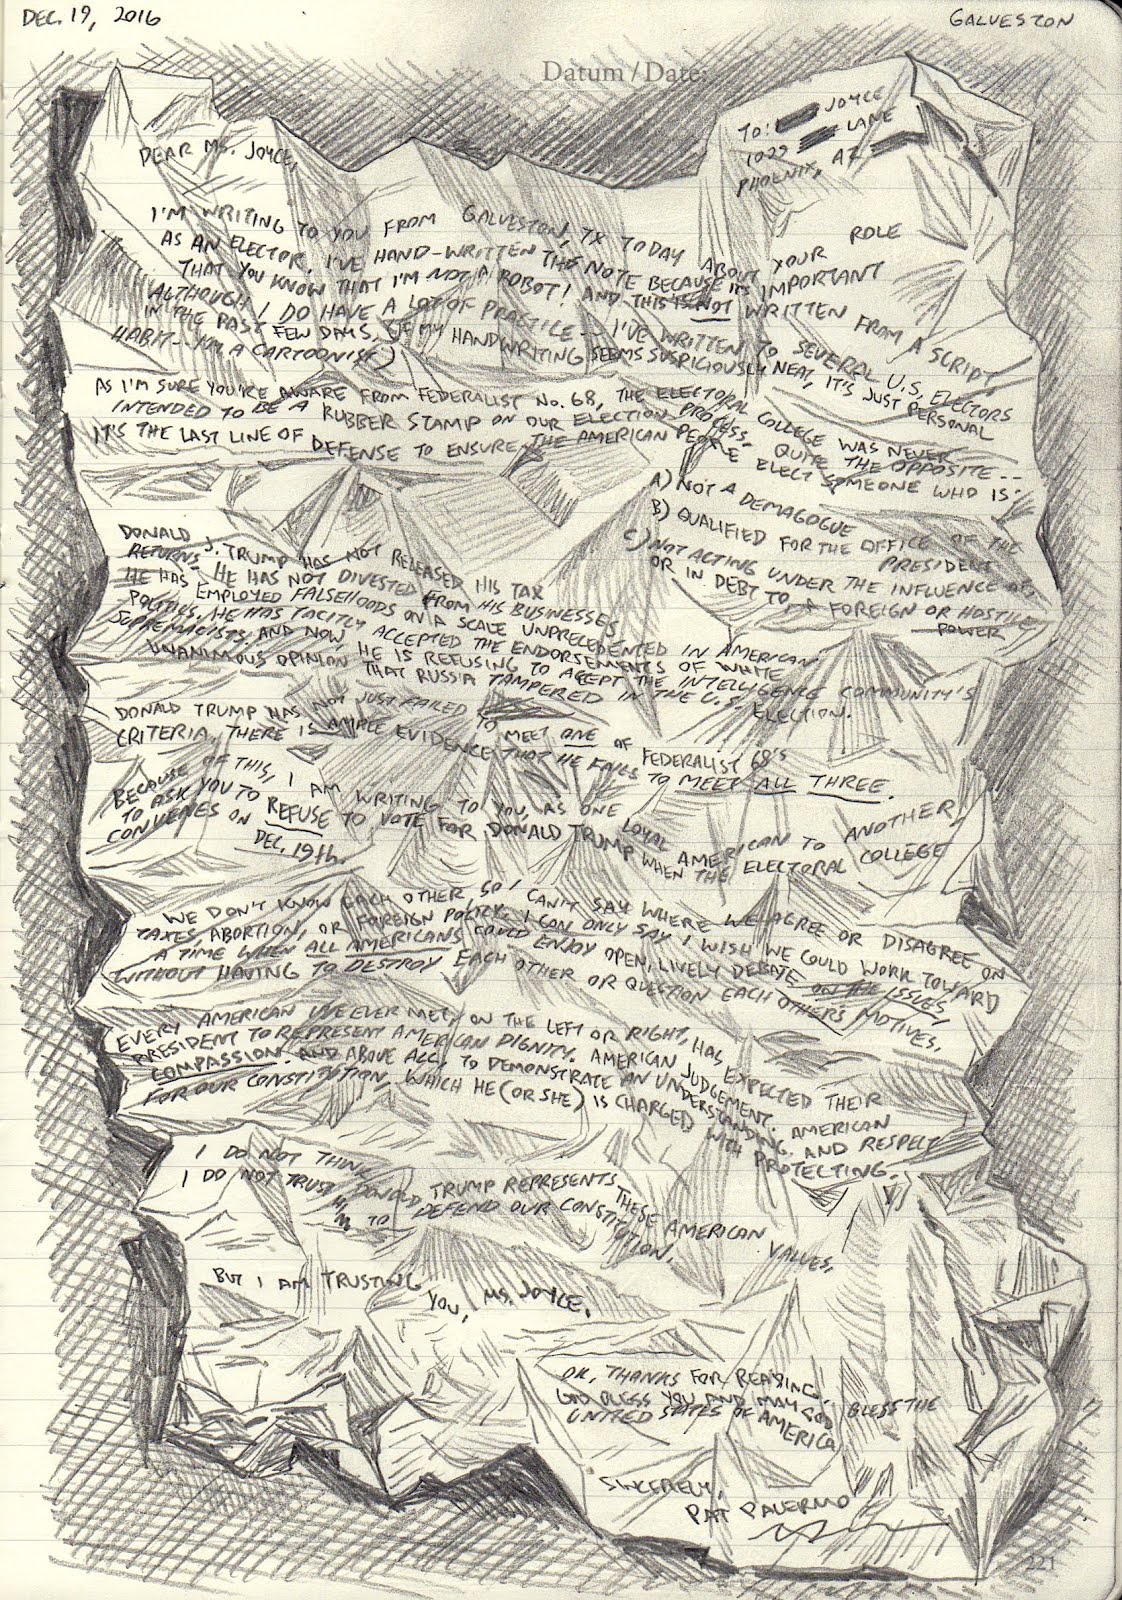 DEC. 19, 2016
GALVESTON
Datum / Date:
TO: JOYCE
1029 LANE
PHOENIX, AZ
DEAR MS. JOYCE,
I'M WRITING TO YOU FROM GALVESTON, TX TODAY ABOUT YOUR ROLE
AS AN ELECTOR. I'VE HAND-WRITTEN THIS NOTE BECAUSE IT'S IMPORTANT
THAT YOU KNOW THAT I'M NOT A ROBOT! AND THIS IS NOT WRITTEN FROM A SCRIPT
ALTHOUGH I DO HAVE A LOT OF PRACTICE-- I'VE WRITTEN TO SEVERAL U.S. ELECTORS
IN THE PAST FEW DAYS. (IF MY HANDWRITING SEEMS SUSPICIOUSLY NEAT, IT'S JUST PERSONAL
HABIT-- I'M A CARTOONIST)
AS I'M SURE YOU'RE AWARE FROM FEDERALIST NO. 68, THE ELECTORAL COLLEGE WAS NEVER
INTENDED TO BE A RUBBER STAMP ON OUR ELECTION PROCESS. QUITE THE OPPOSITE--
IT'S THE LAST LINE OF DEFENSE TO ENSURE THE AMERICAN PEOPLE ELECT SOMEONE WHO IS:
A) NOT A DEMAGOGUE
B) QUALIFIED FOR THE OFFICE OF THE PRESIDENT
C) NOT ACTING UNDER THE INFLUENCE OF,
OR IN DEBT TO A FOREIGN OR HOSTILE
POWER
DONALD J. TRUMP HAS NOT RELEASED HIS TAX
RETURNS. HE HAS NOT DIVESTED FROM HIS BUSINESSES
HE HAS EMPLOYED FALSEHOODS ON A SCALE UNPRECEDENTED IN AMERICAN
POLITICS. HE HAS TACITLY ACCEPTED THE ENDORSEMENTS OF WHITE
SUPREMACISTS. AND NOW, HE IS REFUSING TO ACCEPT THE INTELLIGENCE COMMUNITY'S
UNANIMOUS OPINION THAT RUSSIA TAMPERED IN THE U.S. ELECTION.
DONALD TRUMP HAS NOT JUST FAILED TO MEET ONE OF FEDERALIST 68'S
CRITERIA. THERE IS AMPLE EVIDENCE THAT HE FAILS TO MEET ALL THREE.
BECAUSE OF THIS, I AM WRITING TO YOU, AS ONE LOYAL AMERICAN TO ANOTHER,
TO ASK YOU TO REFUSE TO VOTE FOR DONALD TRUMP WHEN THE ELECTORAL COLLEGE
CONVENES ON DEC. 19th.
WE DON'T KNOW EACH OTHER SO I CAN'T SAY WHERE WE AGREE OR DISAGREE ON
TAXES, ABORTION, OR FOREIGN POLICY. I CAN ONLY SAY I WISH WE COULD WORK TOWARD
A TIME WHEN ALL AMERICANS COULD ENJOY OPEN, LIVELY DEBATE ON THE ISSUES,
WITHOUT HAVING TO DESTROY EACH OTHER OR QUESTION EACH OTHER'S MOTIVES.
EVERY AMERICAN I'VE EVER MET, ON THE LEFT OR RIGHT, HAS EXPECTED THEIR
PRESIDENT TO REPRESENT AMERICAN DIGNITY. AMERICAN JUDGEMENT. AMERICAN
COMPASSION. AND ABOVE ALL, TO DEMONSTRATE AN UNDERSTANDING, AND RESPECT
FOR OUR CONSTITUTION, WHICH HE (OR SHE) IS CHARGED WITH PROTECTING.
I DO NOT THINK DONALD TRUMP REPRESENTS THESE AMERICAN VALUES.
I DO NOT TRUST HIM TO DEFEND OUR CONSTITUTION.
BUT I AM TRUSTING YOU, MS. JOYCE.
OK, THANKS FOR READING!
GOD BLESS YOU AND MAY GOD BLESS THE
UNITED STATES OF AMERICA
SINCERELY,
PAT PALERMO
221